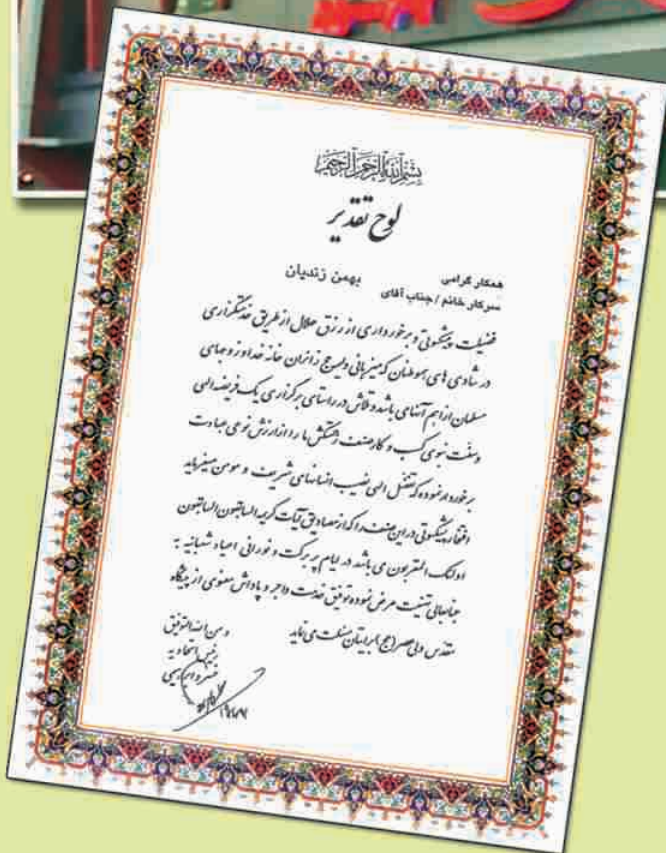 بسم الله الرحمن الرحیم
لوح تقدیر
همکار گرامی
سرکار خانم / جناب آقای بهمن زندیان
فضیلت پیشکسوتی و برخورداری از رزق حلال از طریق خدمتگزاری
در شادی های هموطنان که میزبانی و لیمه حج زائران خانه خدا و زوجهای
مسلمان از اهم آنها می باشد و تلاش در راستای برگزاری یک فریضه الهی
و سنت نبوی کسب و کار صنعت و شغلش ما را از ارزش نوعی عبادت
برخوردار نموده که تفضل الهی نصیب انسانهای شریف و مومن میفرماید
افتخار پیشکسوتی در این صنف را که از مصادیق آیات کریمه السابقون السابقون
اولئک المقربون می باشد در ایام پر برکت و نورانی اعیاد شعبانیه به
جنابعالی تهنیت عرض نموده توفیق خدمت و اجر و پاداش معنوی از پیشگاه
مقدس ولی عصر (عج) برایتان مسئلت می نماید
و من الله التوفیق
رئیس اتحادیه
خسرو ابراهیمی